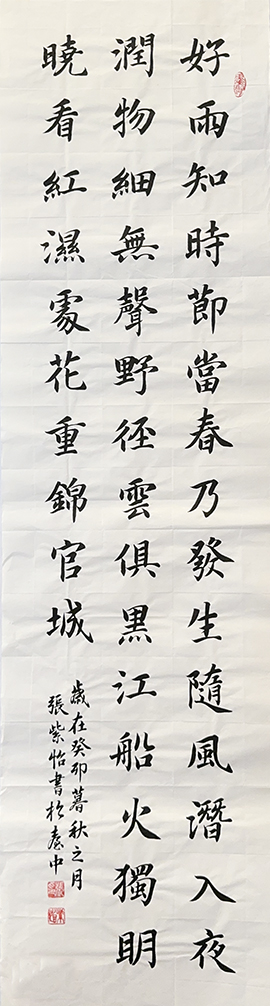 好雨知時節當春乃發生隨風潛入夜
潤物細無聲野徑雲俱黑江船火獨明
曉看紅濕處花重錦官城
歲在癸卯暮秋之月
張紫怡書於臺中